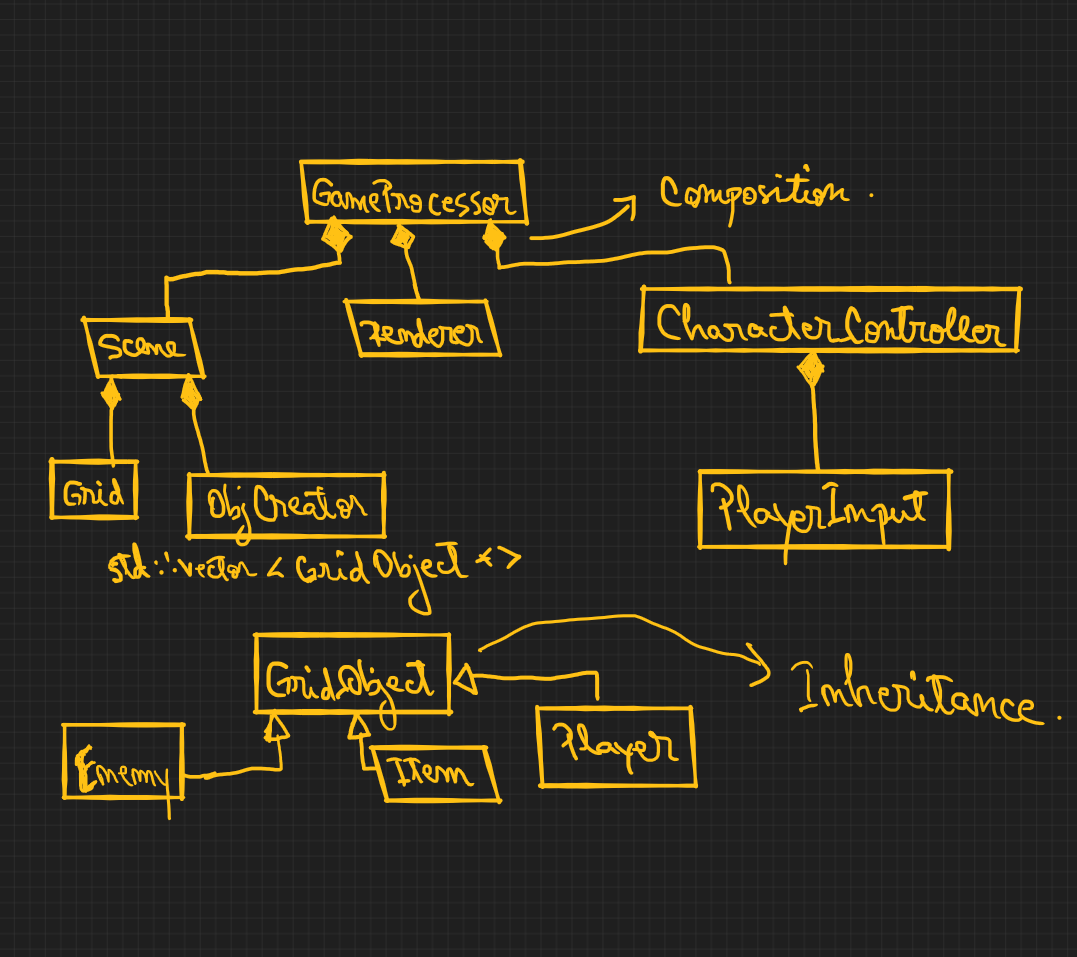 GameProcessor
Composition.
Scene
Renderer
CharacterController
Grid
ObjCreator
PlayerInput
std::vector < GridObject *>
GridObject
Inheritance.
Enemy
Item
Player